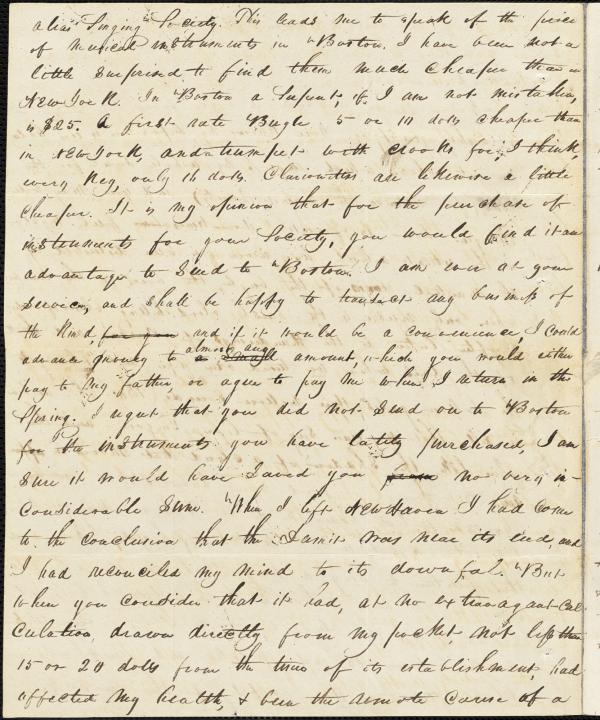 alias Singing Society. This leads me to speak of the price
of Musical instruments in Boston. I have been not a
little surprised to find them much cheaper than in
New York. In Boston a Serpent, if I am not mistaken,
is $25. A first rate Bugle 5 or 10 dolls cheaper than
in New York, and a trumpet with crooks for, I think,
every Key, only 16 dolls. Clarionettes are likewise a little
cheaper. It is my opinion that for the purchase of
instruments for your Society, you would find it an
advantage to send to Boston. I am now at your
service, and shall be happy to transact any business of
the Kind, for you and if it would be a convenience, I could
advance money to almost any
a small amount, which you would either
pay to my father, or agree to pay me when I return in the
Spring. I regret that you did not send on to Boston
for the instruments you have lately purchased, I am
sure it would have saved you from no very in-
considerable sum. When I left New Haven I had come
to the conclusion that the was near its end, and
I had reconciled my mind to its downfal. But
when you consider that it had, at no extravagant cal-
culation, drawn directly from my pocket, not less than
15 or 20 dolls from the time of its establishment, had
affected my health, & been the remote cause of a